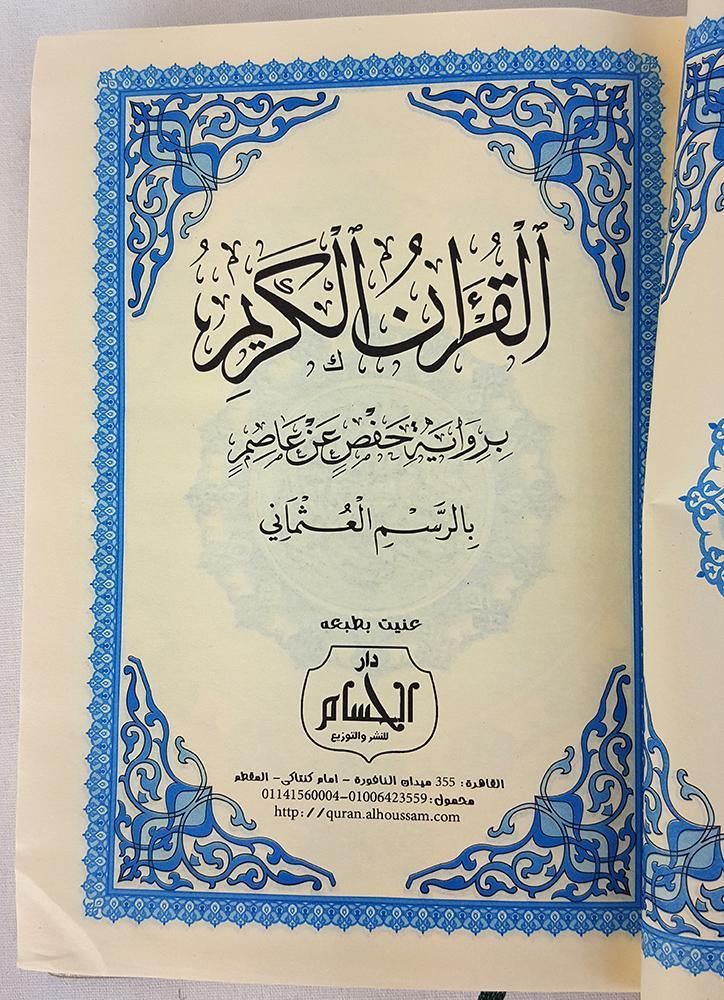 القُرْآنُ الْكَرِيمُ
بِرِوَايَةِ حَفْصٍ عَنْ عَاصِمٍ
بِالرَّسْمِ الْعُثْمَانِي
عنيت بطبعه
دار
الحسام
للنشر والتوزيع
القاهرة: 355 ميدان النافورة - امام كنتاكي - المقطم
محمول: 01006423559-01141560004
http://quran.alhoussam.com